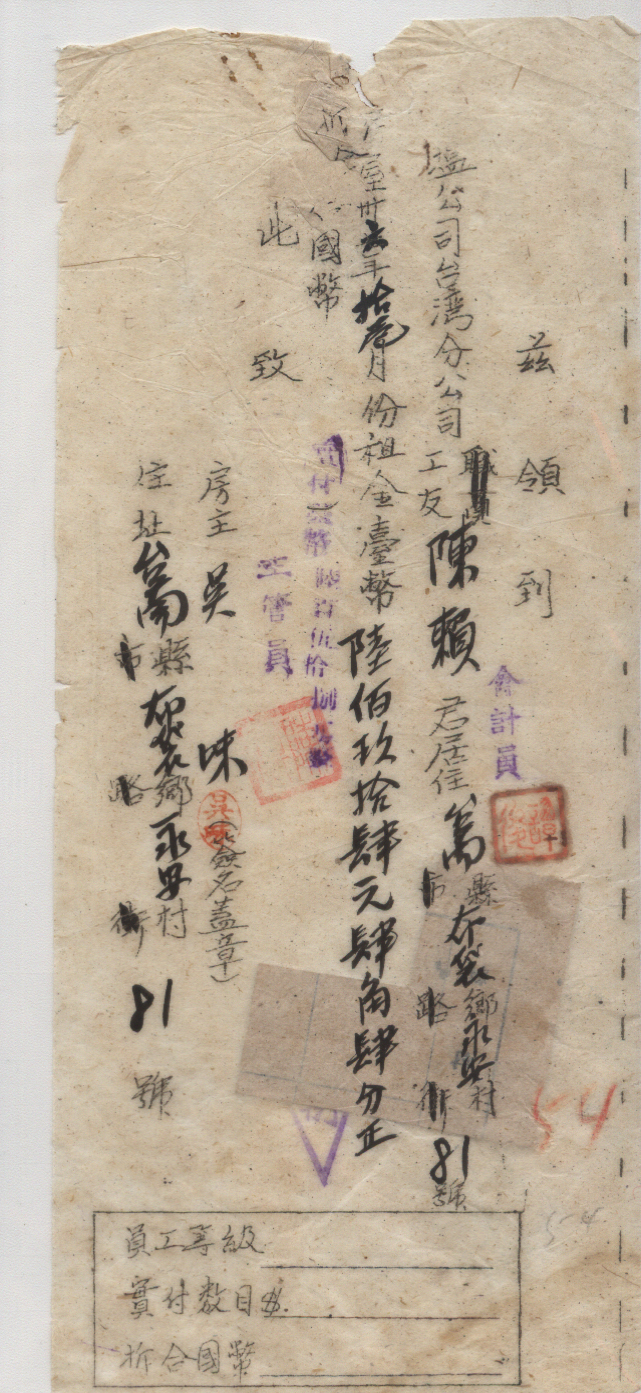 茲領到
塩公司台灣分公司
職員
工友
陳賴君居住
縣布袋鄉永安村
市路街81號
屋卅六年拾
月份租金臺幣陸佰玖拾肆元肆角肆分正
折合國幣
此致
會計員
主管員
房主吳味(簽名蓋章)
住址台南縣布袋鄉永安村
市路街81號
54
54
員工等級
實付數目$
折合國幣